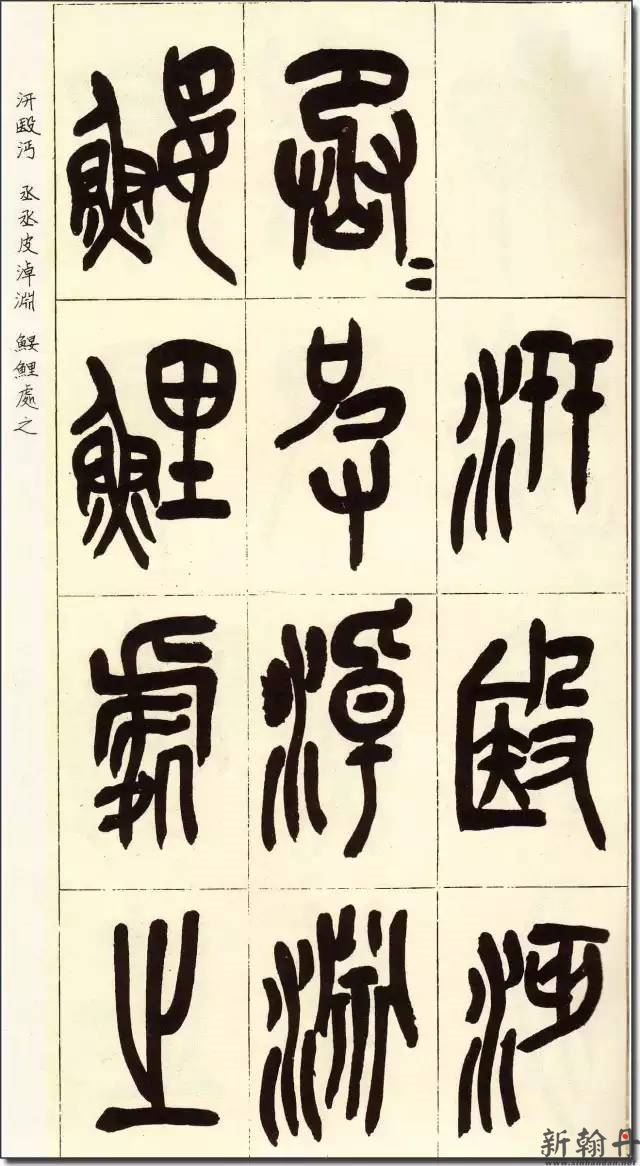 汧殹沔
丞＝皮淖淵
鰋鯉處之
汧殹沔 丞丞皮淖淵 鰋鯉處之
新翰丹